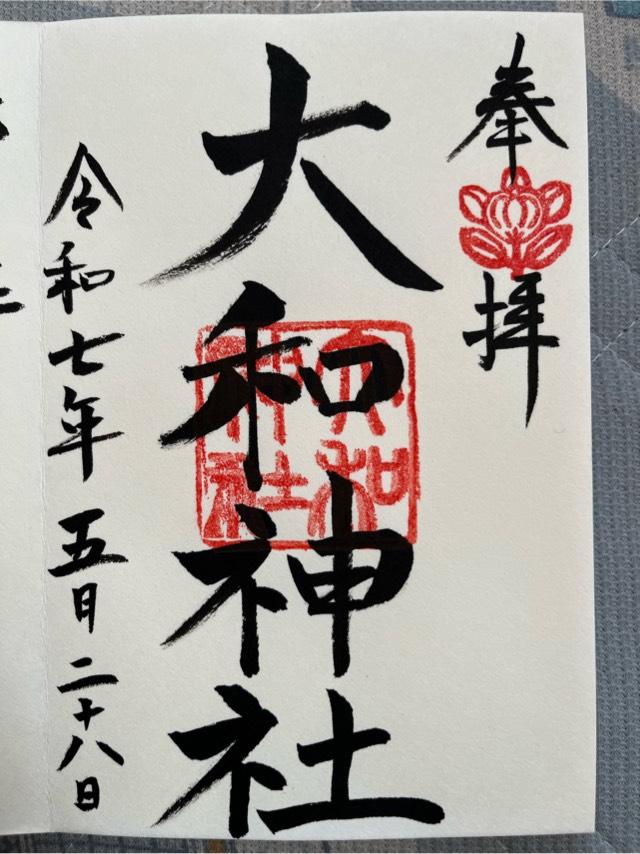 奉拝
大和神社
大和神社
令和七年五月二十八日